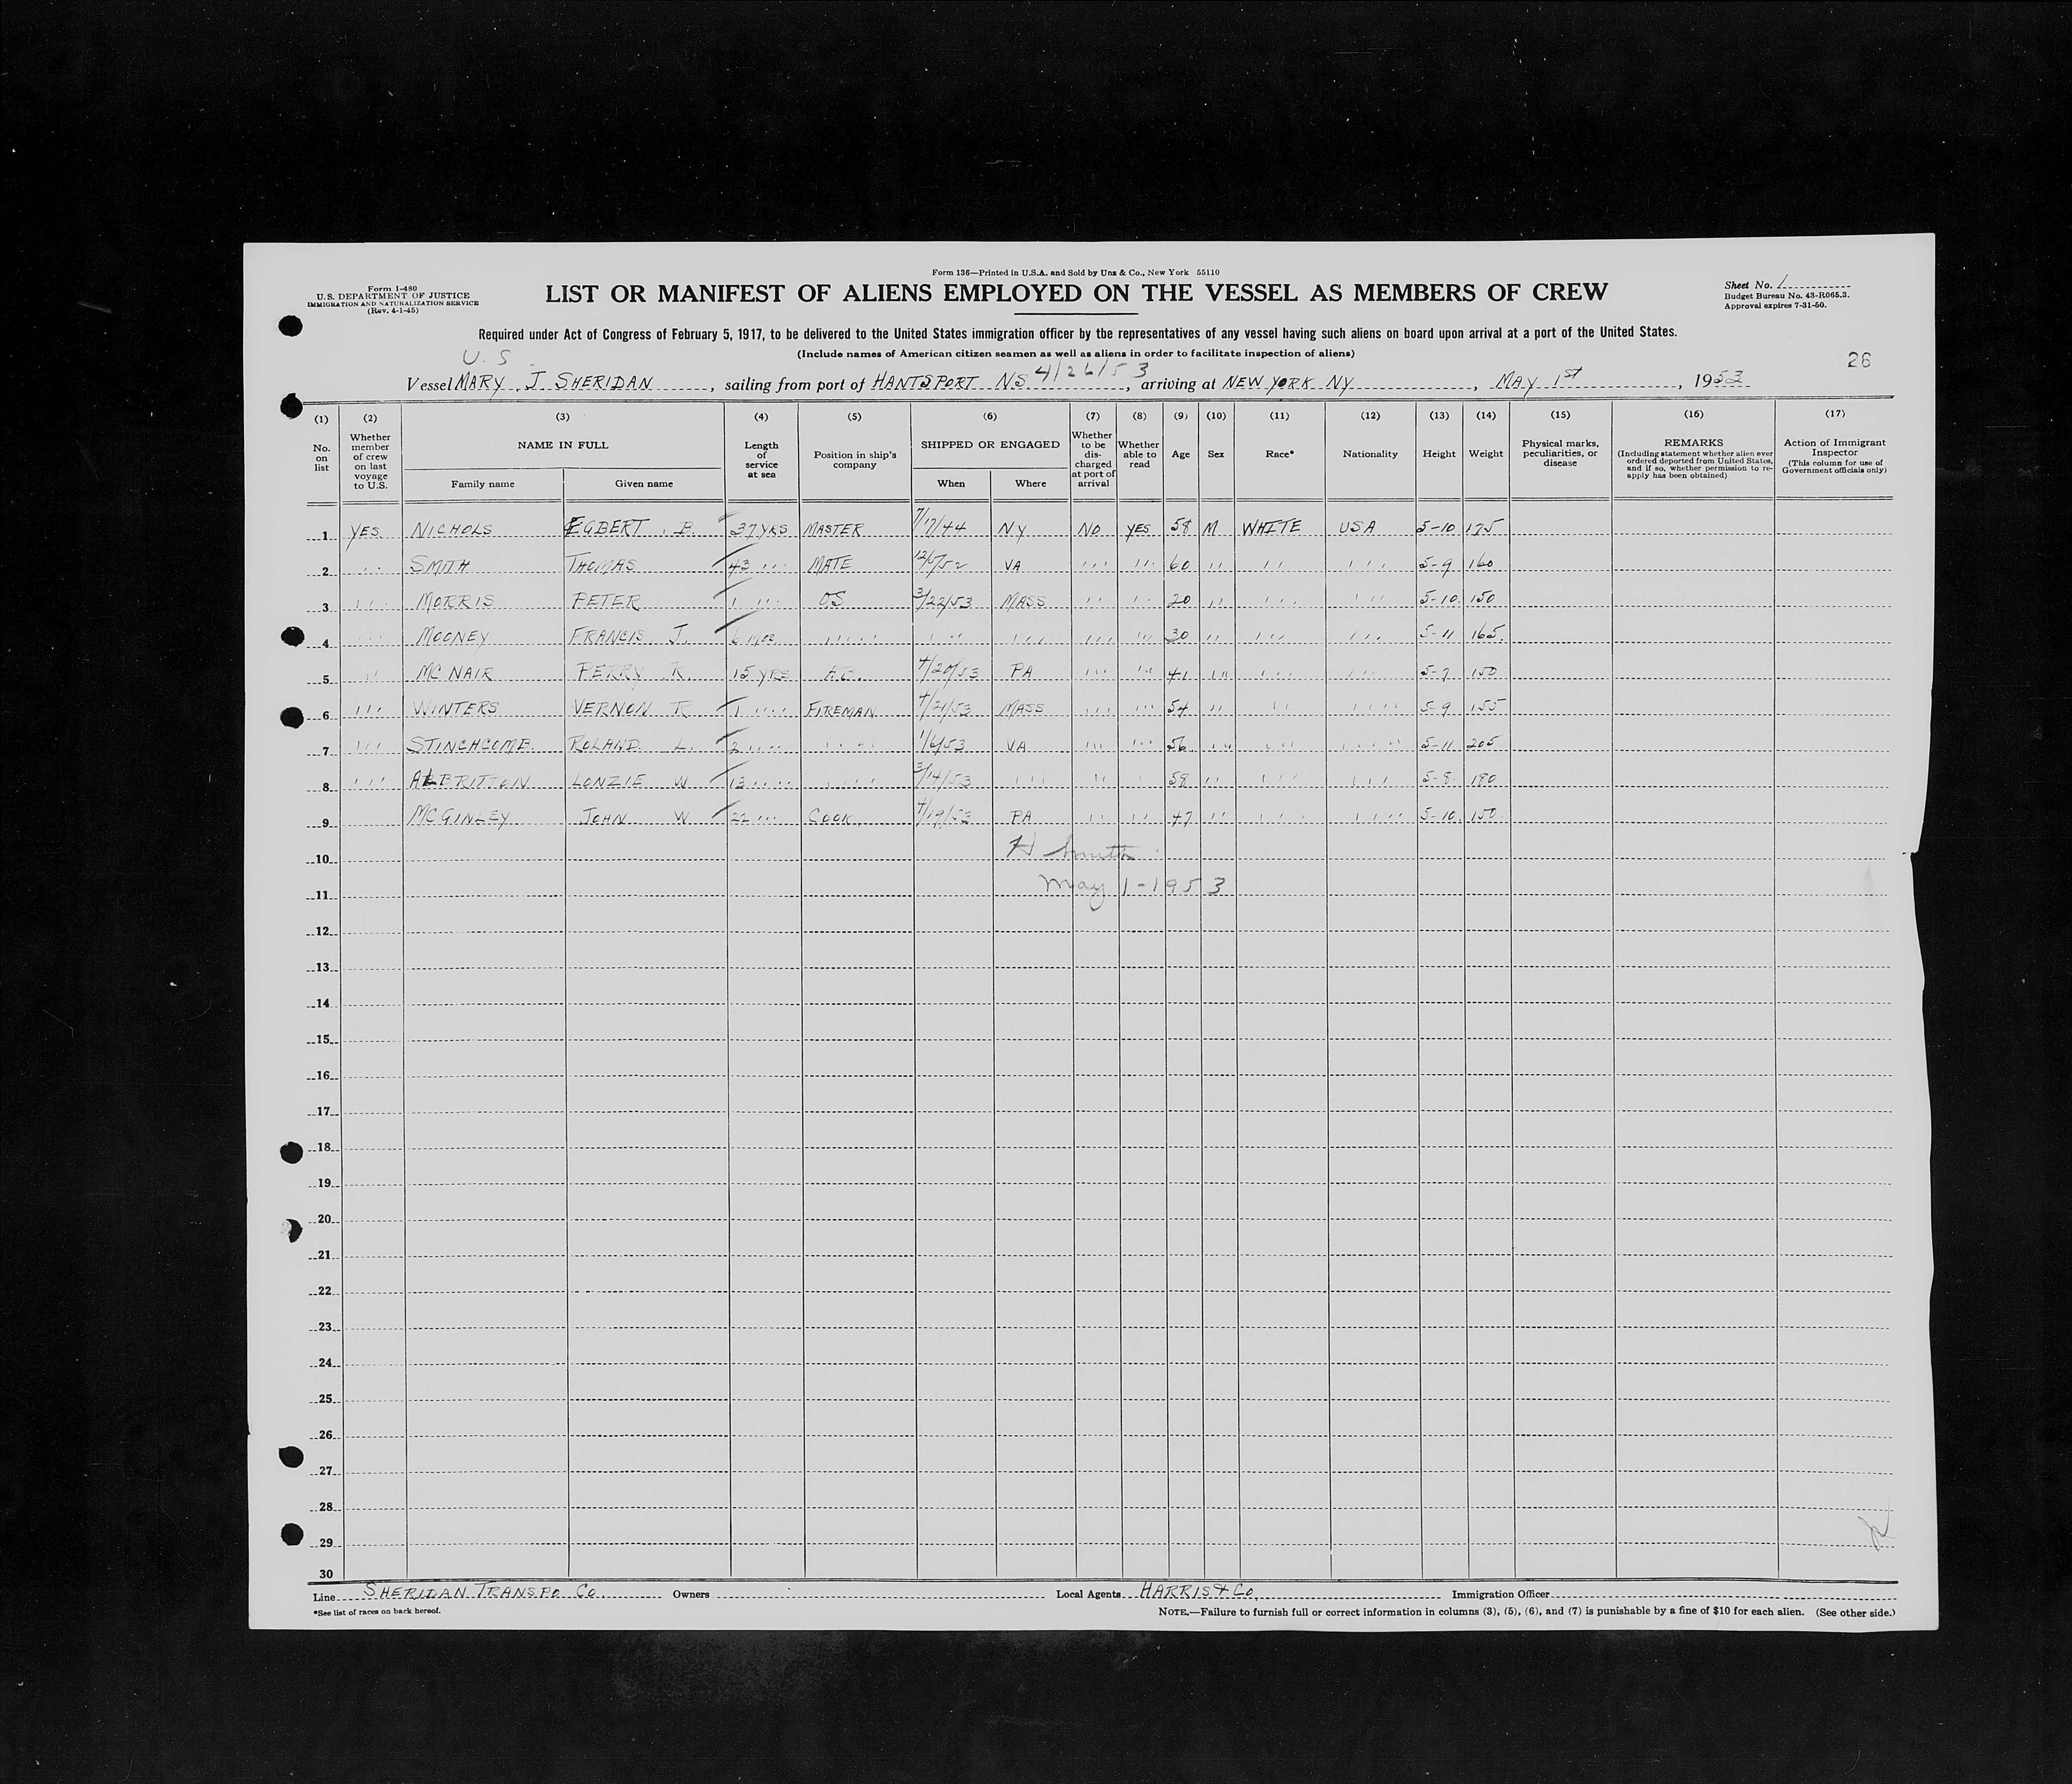 Form 136—Printed in U.S.A. and Sold by Unz & Co., New York 55110
Form I-480
U.S. DEPARTMENT OF JUSTICE
IMMIGRATION AND NATURALIZATION SERVICE
(Rev. 4-1-45)
LIST OR MANIFEST OF ALIENS EMPLOYED ON THE VESSEL AS MEMBERS OF CREW
Sheet No. 1
Budget Bureau No. 43-R065.3.
Approval expires 7-31-50.
Required under Act of Congress of February 5, 1917, to be delivered to the United States immigration officer by the representatives of any vessel having such aliens on board upon arrival at a port of the United States.
(Include names of American citizen seamen as well as aliens in order to facilitate inspection of aliens)
U. S.
26
Vessel MARY J SHERIDAN, sailing from port of HANTSPORT NS 4/26/53, arriving at NEW YORK NY, MAY 1st, 1953
(1) (2) (3) (4) (5) (6) (7) (8) (9) (10) (11) (12) (13) (14) (15) (16) (17)
No. on list
Whether member of crew on last voyage to U.S.
NAME IN FULL
Family name Given name
Length of service at sea
Position in ship's company
SHIPPED OR ENGAGED
When Where
Whether to be discharged at port of arrival
Whether able to read
Age
Sex
Race*
Nationality
Height
Weight
Physical marks, peculiarities, or disease
REMARKS
(Including statement whether alien ever ordered deported from United States, and if so, whether permission to reapply has been obtained)
Action of Immigrant Inspector
(This column for use of Government officials only)
1 YES NICHOLS EGBERT. B. 37 YRS MASTER 7/17/44 NY NO YES 58 M WHITE USA 5-10 175
2 " SMITH THOMAS 43 " MATE VA " " 60 " " " 5-9 160
3 " MORRIS PETER 1 " OS 3/22/53 MASS " " 20 " " " 5-10 150
4 " MOONEY FRANCIS J. " " " " " 30 " " " 5-11 165
5 " MC NAIR PERRY R. 15 YRS A.B. 4/20/53 PA " " 41 " " " 5-7 150
6 " WINTERS VERNON R 1 " FIREMAN 4/21/53 MASS " " 54 " " " 5-9 155
7 " STINCHCOMB ROLAND L. 2 " " 1/6/53 VA " " 56 " " " 5-11 205
8 " ALBRITTON LONZIE W 13 " " 3/14/53 " " 58 " " " 5-8 180
9 MCGINLEY JOHN W 22 " COOK 4/19/53 PA " " 47 " " " 5-10 150
10 H Smith
11 May 1-1953
12
13
14
15
16
17
18
19
20
21
22
23
24
25
26
27
28
29
30
Line SHERIDAN TRANSPO. CO. Owners Local Agents HARRIS & CO. Immigration Officer
*See list of races on back hereof.
NOTE.—Failure to furnish full or correct information in columns (3), (5), (6), and (7) is punishable by a fine of $10 for each alien. (See other side.)